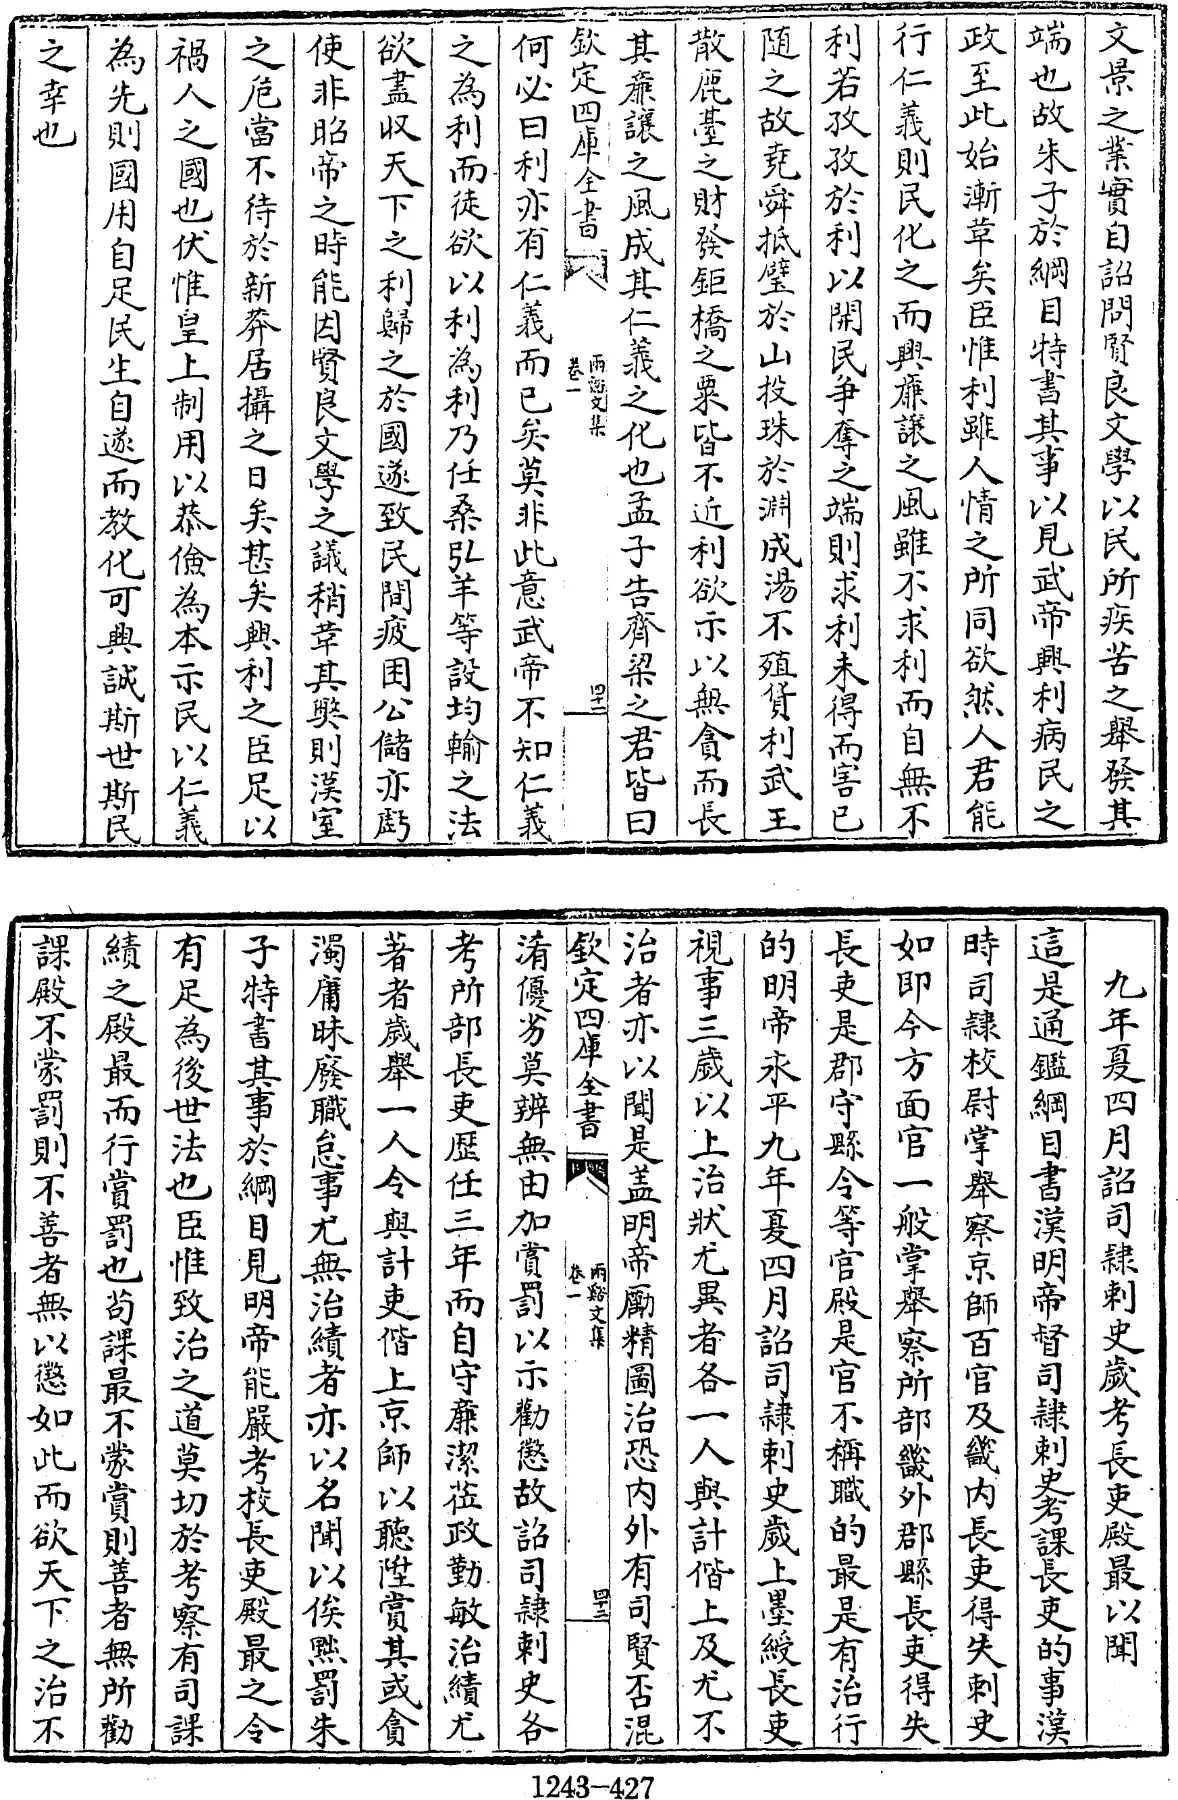 文景之業實自詔問賢良文學以民所疾苦之舉發其
端也故朱子於綱目特書其事以見武帝興利病民之
政至此始漸革矣臣惟利雖人情之所同欲然人君能
行仁義則民化之而興廉讓之風雖不求利而自無不
利若孜孜於利以開民爭奪之端則求利未得而害已
隨之故堯舜抵璧於山投珠於淵成湯不殖貨利武王
散鹿臺之財發鉅橋之粟皆不近利欲示以無貪而長
其廉讓之風成其仁義之化也孟子告齊梁之君皆曰
欽定四庫全書
兩谿文集
卷一
四十二
何必曰利亦有仁義而已矣莫非此意武帝不知仁義
之為利而徒欲以利為利乃任桑弘羊等設均輸之法
欲盡收天下之利歸之於國遂致民間疲困公儲亦虧
使非昭帝之時能因賢良文學之議稍革其弊則漢室
之危當不待於新莽居攝之日矣甚矣興利之臣足以
禍人之國也伏惟皇上制用以恭儉為本示民以仁義
為先則國用自足民生自遂而教化可興誠斯世斯民
之幸也
九年夏四月詔司隷刺史歲考長吏殿最以聞
這是通鑑綱目書漢明帝督司隷刺史考課長吏的事漢
時司隷校尉掌舉察京師百官及畿內長吏得失刺史
如即今方面官一般掌舉察所部畿外郡縣長吏得失
長吏是郡守縣令等官殿是官不稱職的最是有治行
的明帝永平九年夏四月詔司隷刺史歲上墨綬長吏
視事三歲以上治狀尤異者各一人與計偕上及尤不
治者亦以聞是盖明帝勵精圖治恐內外有司賢否混
欽定四庫全書
兩谿文集
卷一
四十三
淆優劣莫辨無由加賞罰以示勸懲故詔司隷刺史各
考所部長吏歷任三年而自守廉潔蒞政勤敏治績尤
著者歲舉一人令與計吏偕上京師以聽陞賞其或貪
濁庸昧廢職怠事尤無治績者亦以名聞以俟黜罰朱
子特書其事於綱目見明帝能嚴考校長吏殿最之令
有足為後世法也臣惟致治之道莫切於考察有司課
績之殿最而行賞罰也苟課最不蒙賞則善者無所勸
課殿不蒙罰則不善者無以懲如此而欲天下之治不
1243-427